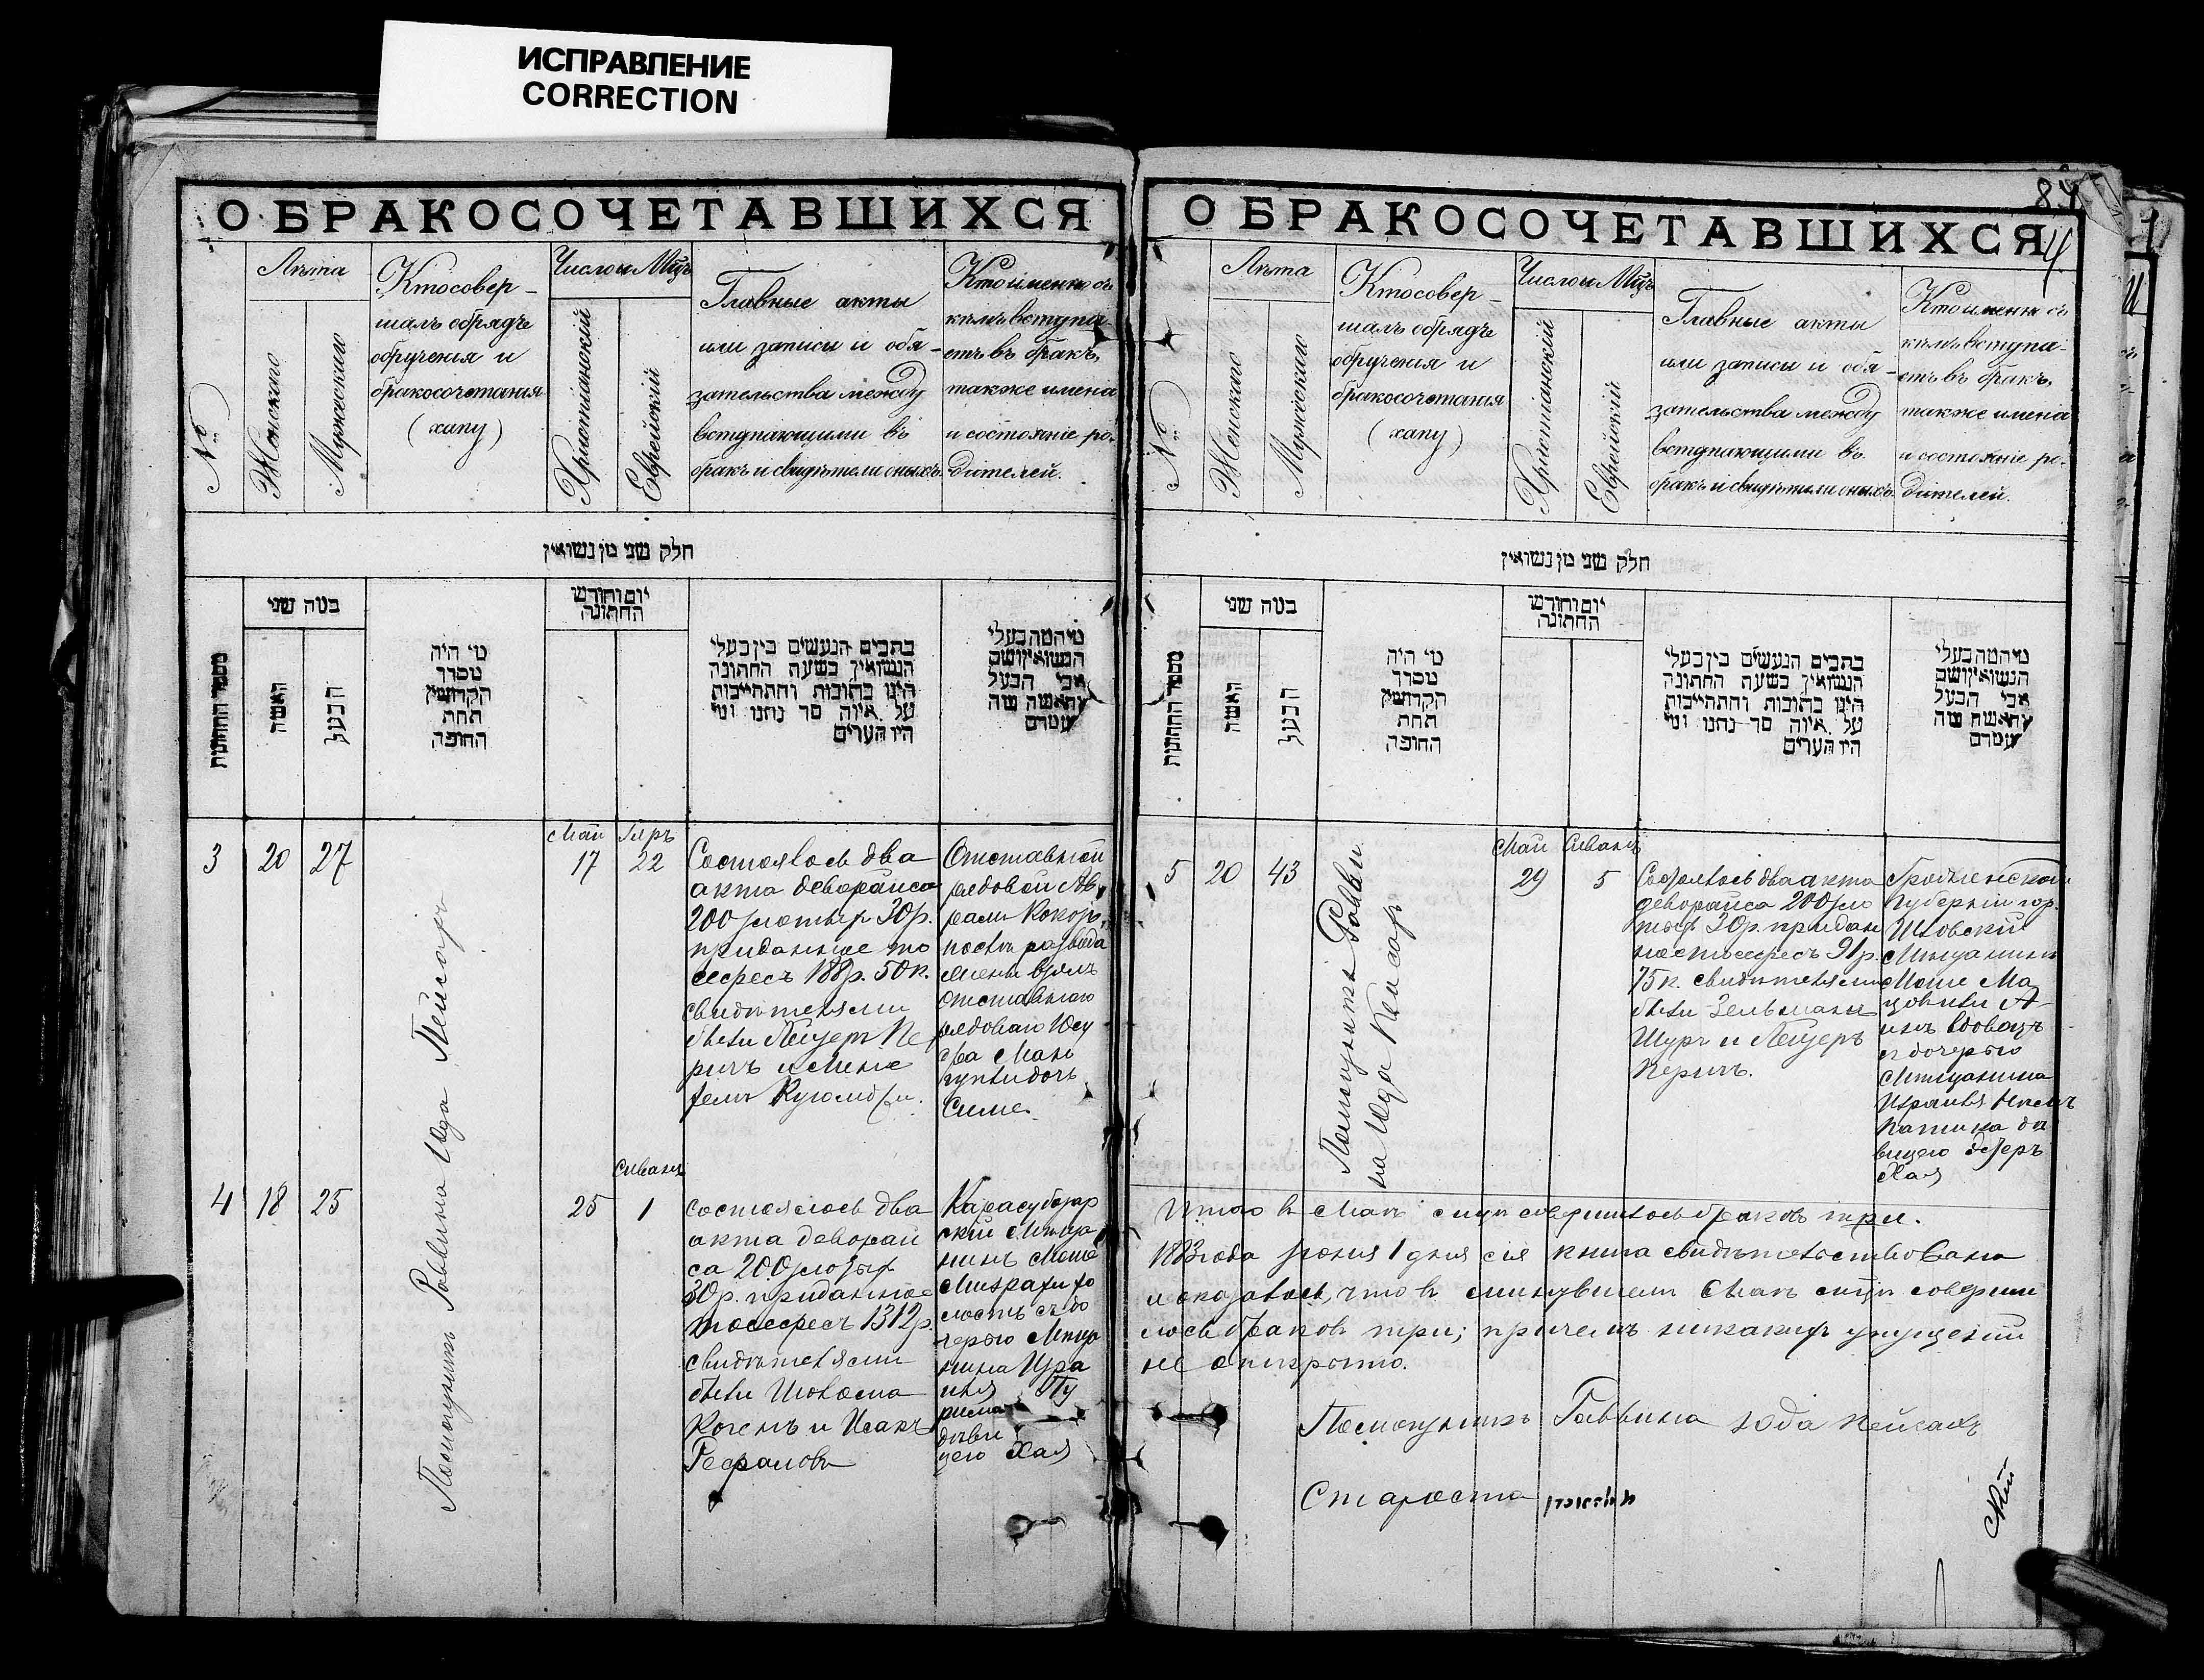 ИСПРАВЛЕНИЕ
CORRECTION
О БРАКОСОЧЕТАВШИХСЯ
№
Лѣта
Женскаго
Мужескаго
Кто совер-
шалъ обрядъ
обрученія и
бракосочетанія
(хапу)
Число и Мцъ
Христіанскій
Еврейскій
Главные акты
или записи и обя-
зательства между
вступающими въ
бракъ и свидѣтели оныхъ.
Кто именно съ
кѣмъ вступа-
етъ въ бракъ,
также имена
и состояніе ро-
дителей.
חלק שני מן נשואין
מספר החתונות
כמה שני
האשה
הבעל
מי היה
מסדר
הקדושין
תחת
החופה
יום וחודש
החתונה
בתבים הנעשים בין בעלי
הנשואין בשעת החתונה
היינו כתובות והתחייבות
על איזה סך נתנו ומי
היו העדים
מי המה בעלי
הנשואין ושם
אבי הבעל
והאשה מה
מעמדם
3
20
27
Помощникъ Раввина Юда Пейсахъ
Май
17
Iяръ
22
Состоялось два
акта деворайса
200 злотых 30р.
приданное то
сесресъ 188р. 50к.
свидѣтелями
были Лейзеръ Пе
ричъ и Мена
Отставной
рядовой Ав
рамъ
послѣ развода
жены взялъ
отставного
рядового
дочь
Симе.
4
18
25
25
Сиванъ
1
состоялось два
акта деворай
са 200 злотых
30р. приданное
тосесресъ 1312р
свидѣтелями
были Шолома
Когенъ и Исакъ
Рефаиловъ
Карасубазар
скій Мѣща
нинъ Моше
Мизрахи хо
лостъ съ до
черью Мѣща
нина Изра
иля Пу
рима
дѣви
цею Хая
84
4
О БРАКОСОЧЕТАВШИХСЯ
№
Лѣта
Женскаго
Мужескаго
Кто совер-
шалъ обрядъ
обрученія и
бракосочетанія
(хапу)
Число и Мцъ
Христіанскій
Еврейскій
Главные акты
или записи и обя-
зательства между
вступающими въ
бракъ и свидѣтели оныхъ.
Кто именно съ
кѣмъ вступа-
етъ въ бракъ,
также имена
и состояніе ро-
дителей.
חלק שני מן נשואין
מספר החתונות
כמה שני
האשה
הבעל
מי היה
מסדר
הקדושין
תחת
החופה
יום וחודש
החתונה
בתבים הנעשים בין בעלי
הנשואין בשעת החתונה
היינו כתובות והתחייבות
על איזה סך נתנו ומי
היו העדים
מי המה בעלי
הנשואין ושם
אבי הבעל
והאשה מה
מעמדם
5
20
43
Помощникъ Равви
на Юда Пейсахъ
Май
29
Сиванъ
5
Состоялось два акта
деворайса 200 зло
тых 30р. придан
ное тосесресъ 91р.
75к. свидѣтелями
были Зельманъ
Шуръ и Лейзеръ
Перичъ.
Гродненской
Губерніи гор.
Мѣщанинъ
Моше
вдовецъ
съ дочерью
Мѣщанина
Израиля
дѣ
вицею Эстеръ
Хая
Итого въ Маѣ мцѣ совершилось браковъ три.
1883 года Іюня 1 дня сія книга свидѣтельствована
и оказалось, что въ минувшемъ Маѣ мцѣ соверши
лось браковъ три; причемъ никакихъ упущеній
не открыто.
Помощникъ Раввина Юда Пейсахъ
Староста